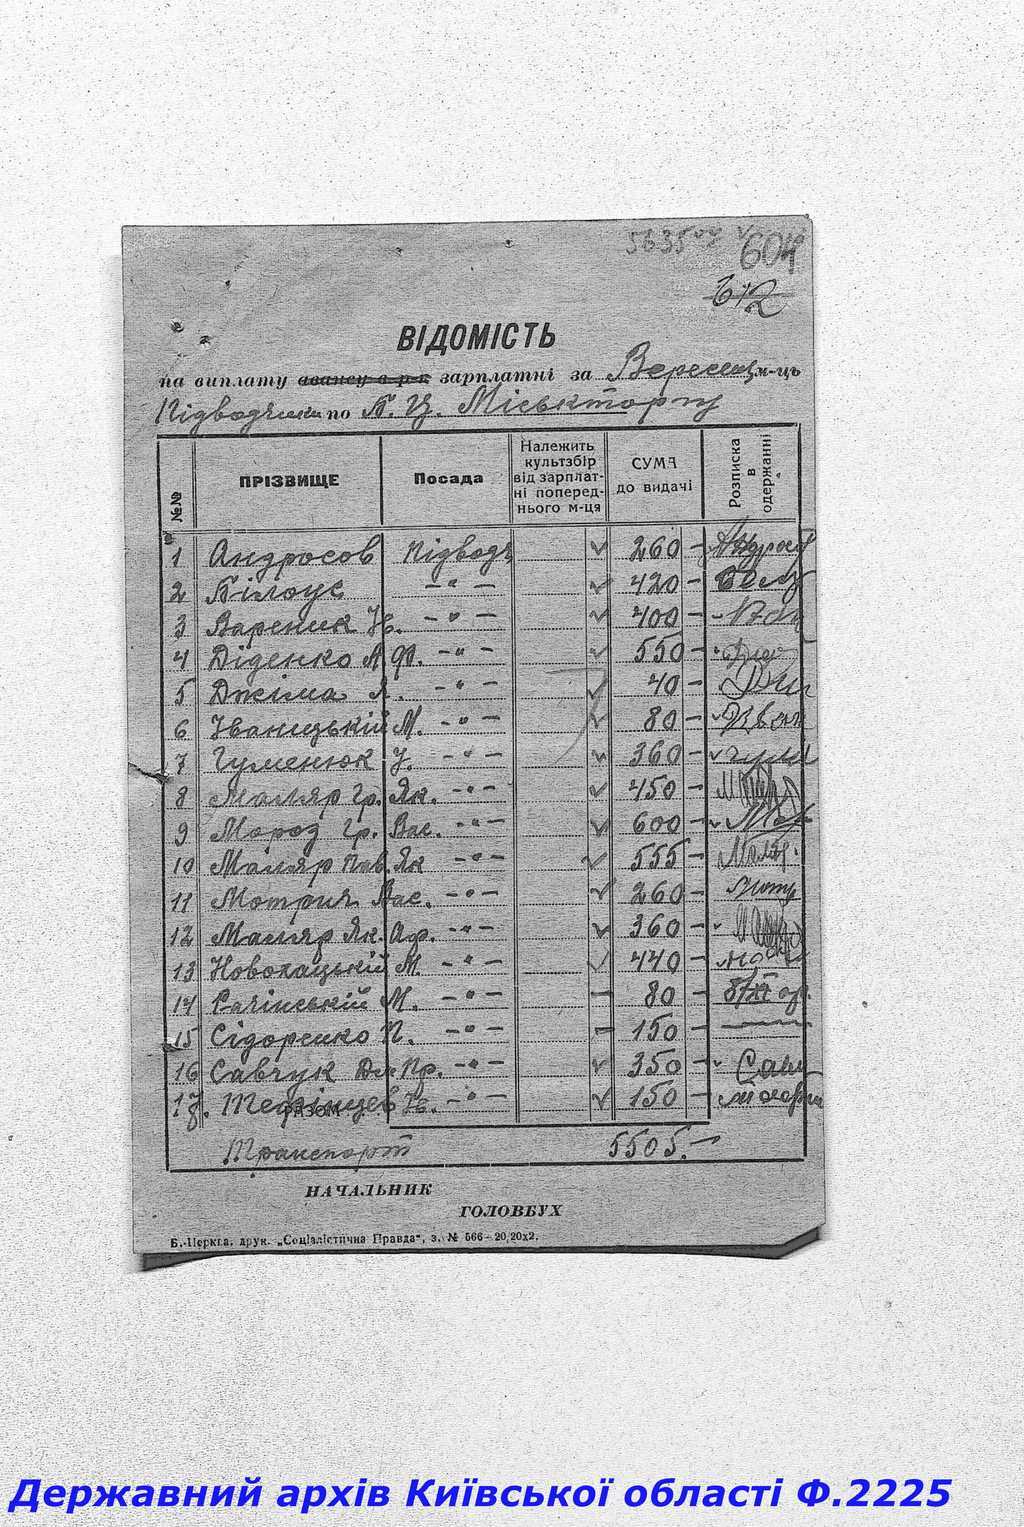 5635
604
612
ВІДОМІСТЬ
на виплату авансу в р-к зарплатні за Вересень м-ць
Підводчики по Б. Ц. Міськторгу
№№ ПРІЗВИЩЕ Посада Належить культзбір від зарплатні попереднього м-ця СУМА до видачі Розписка в одержанні
1 Андросов Підводч 260 —
2 Білоус — " — 420 —
3 Вареник — " — 400 —
4 Діденко — " — 550 —
5 Джіма — " — 40 —
6 Іваницький М. — " — 80 —
7 Гуменюк — " — 360 —
8 Маляр Гр. Як. — " — 450 —
9 Мороз Гр. Вас. — " — 600 —
10 Маляр Пав. Як — " — 555 —
11 Мотрич Вас. — " — 260 —
12 Маляр Як. Аф. — " — 360 —
13 Новохацький М. — " — 440 —
14 М. — " — 80 —
15 Сідоренко П. — " — 150 —
16 Савчук Дм Пр. — " — 350 —
17. — " — 150 —
РАЗОМ
Транспорт 5505.—
НАЧАЛЬНИК
ГОЛОВБУХ
Б.-Церква, друк. „Соціалістична Правда", з. № 566—20,20х2.
Державний архів Київської області Ф.2225